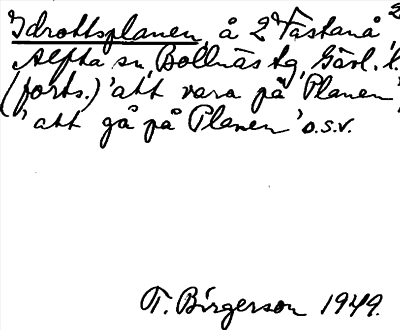 Idrottsplanen, å 2 Västanå 2,
Alfta sn, Bollnäs tg, Gävl. l.
(forts.) 'att vara på Planen',
'att gå på Planen' o.s.v.
T. Birgerson 1949.